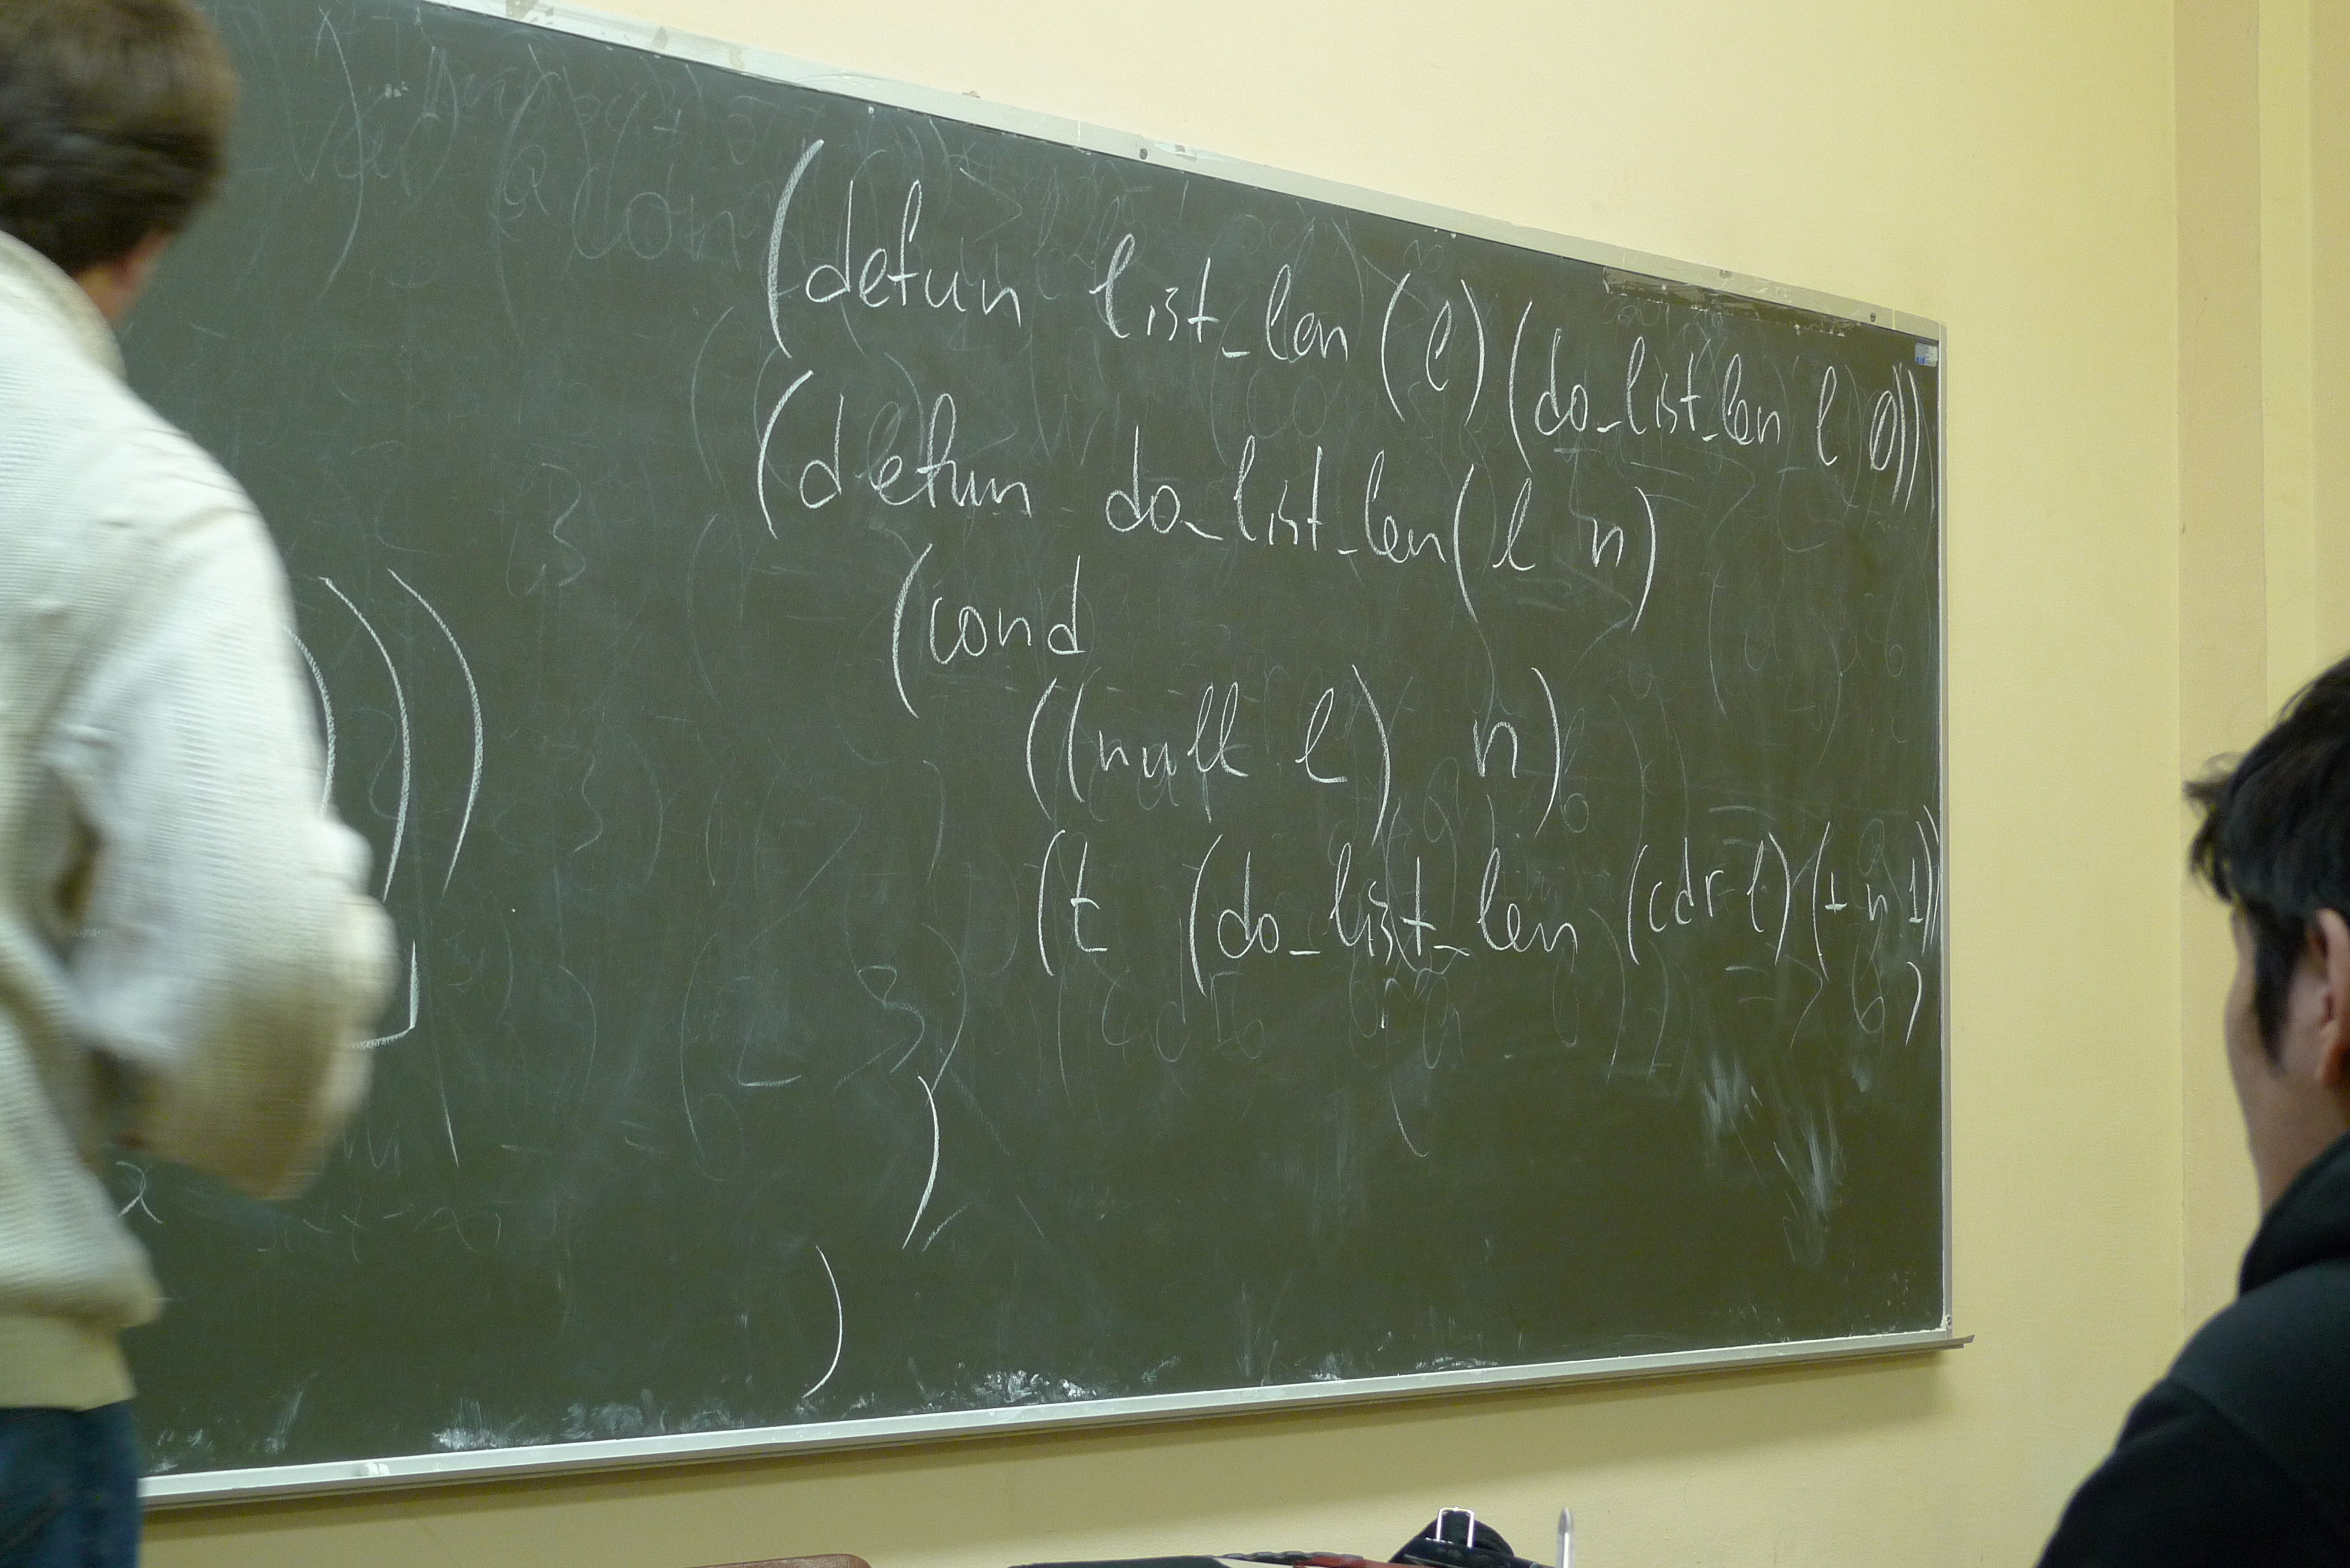 (defun list_len (l) (do_list_len l 0))
(defun do_list_len (l n)
(cond
((null l) n)
(t (do_list_len (cdr l) (+ n 1))
)
)
)